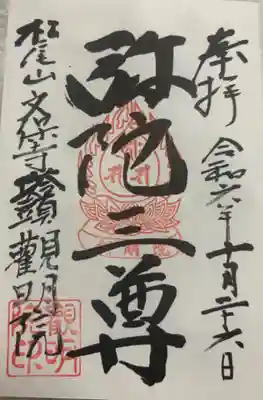 奉拝 令和六年十月二十六日
弥陀三尊
松尾山文保寺 觀明院